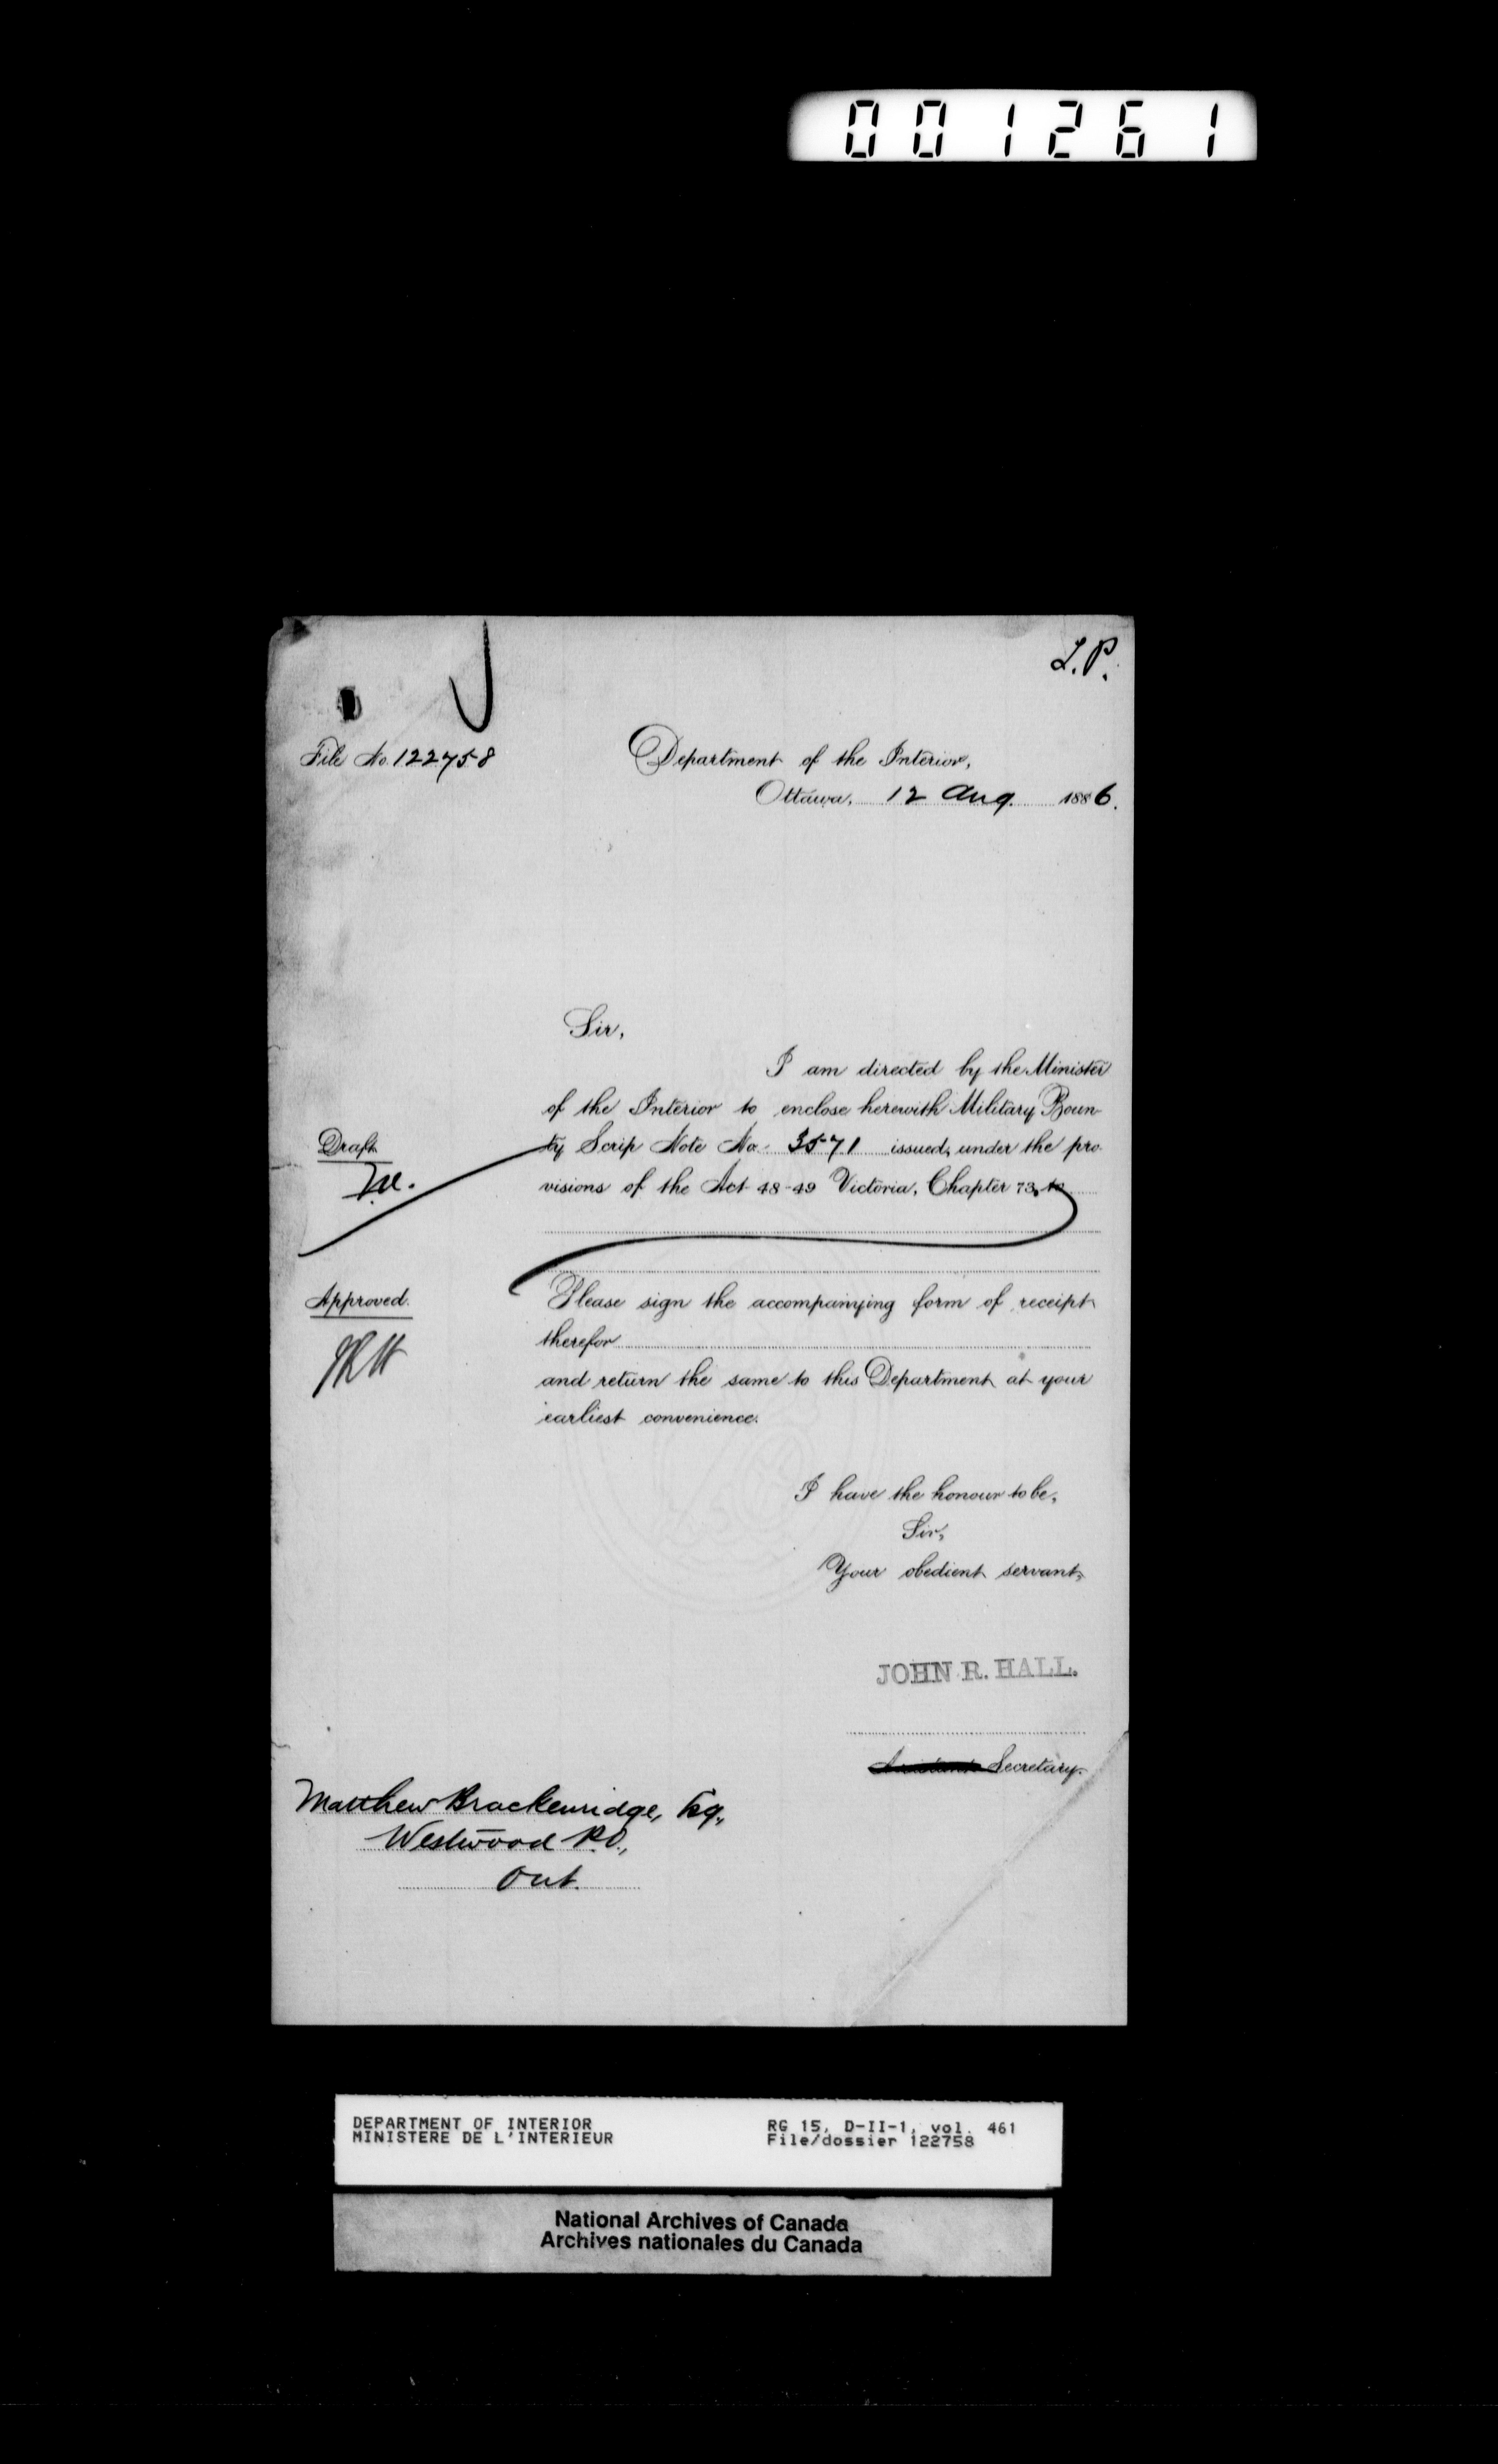 001261
L.P.
File No. 122758
Department of the Interior,
Ottawa, 12 Aug. 1886.
Sir,
I am directed by the Minister
of the Interior to enclose herewith Military Boun-
ty Scrip Note No. 3571 issued, under the pro-
visions of the Act 48-49 Victoria, Chapter 73, to
Draft
Please sign the accompanying form of receipt
therefor
and return the same to this Department at your
earliest convenience.
Approved.
JRH
I have the honour to be,
Sir,
Your obedient servant,
JOHN R. HALL.
Assistant Secretary.
Matthew Brackenridge, Esq.,
Westwood P.O.,
Ont.
DEPARTMENT OF INTERIOR
MINISTERE DE L'INTERIEUR
RG 15, D-II-1, vol. 461
File/dossier 122758
National Archives of Canada
Archives nationales du Canada